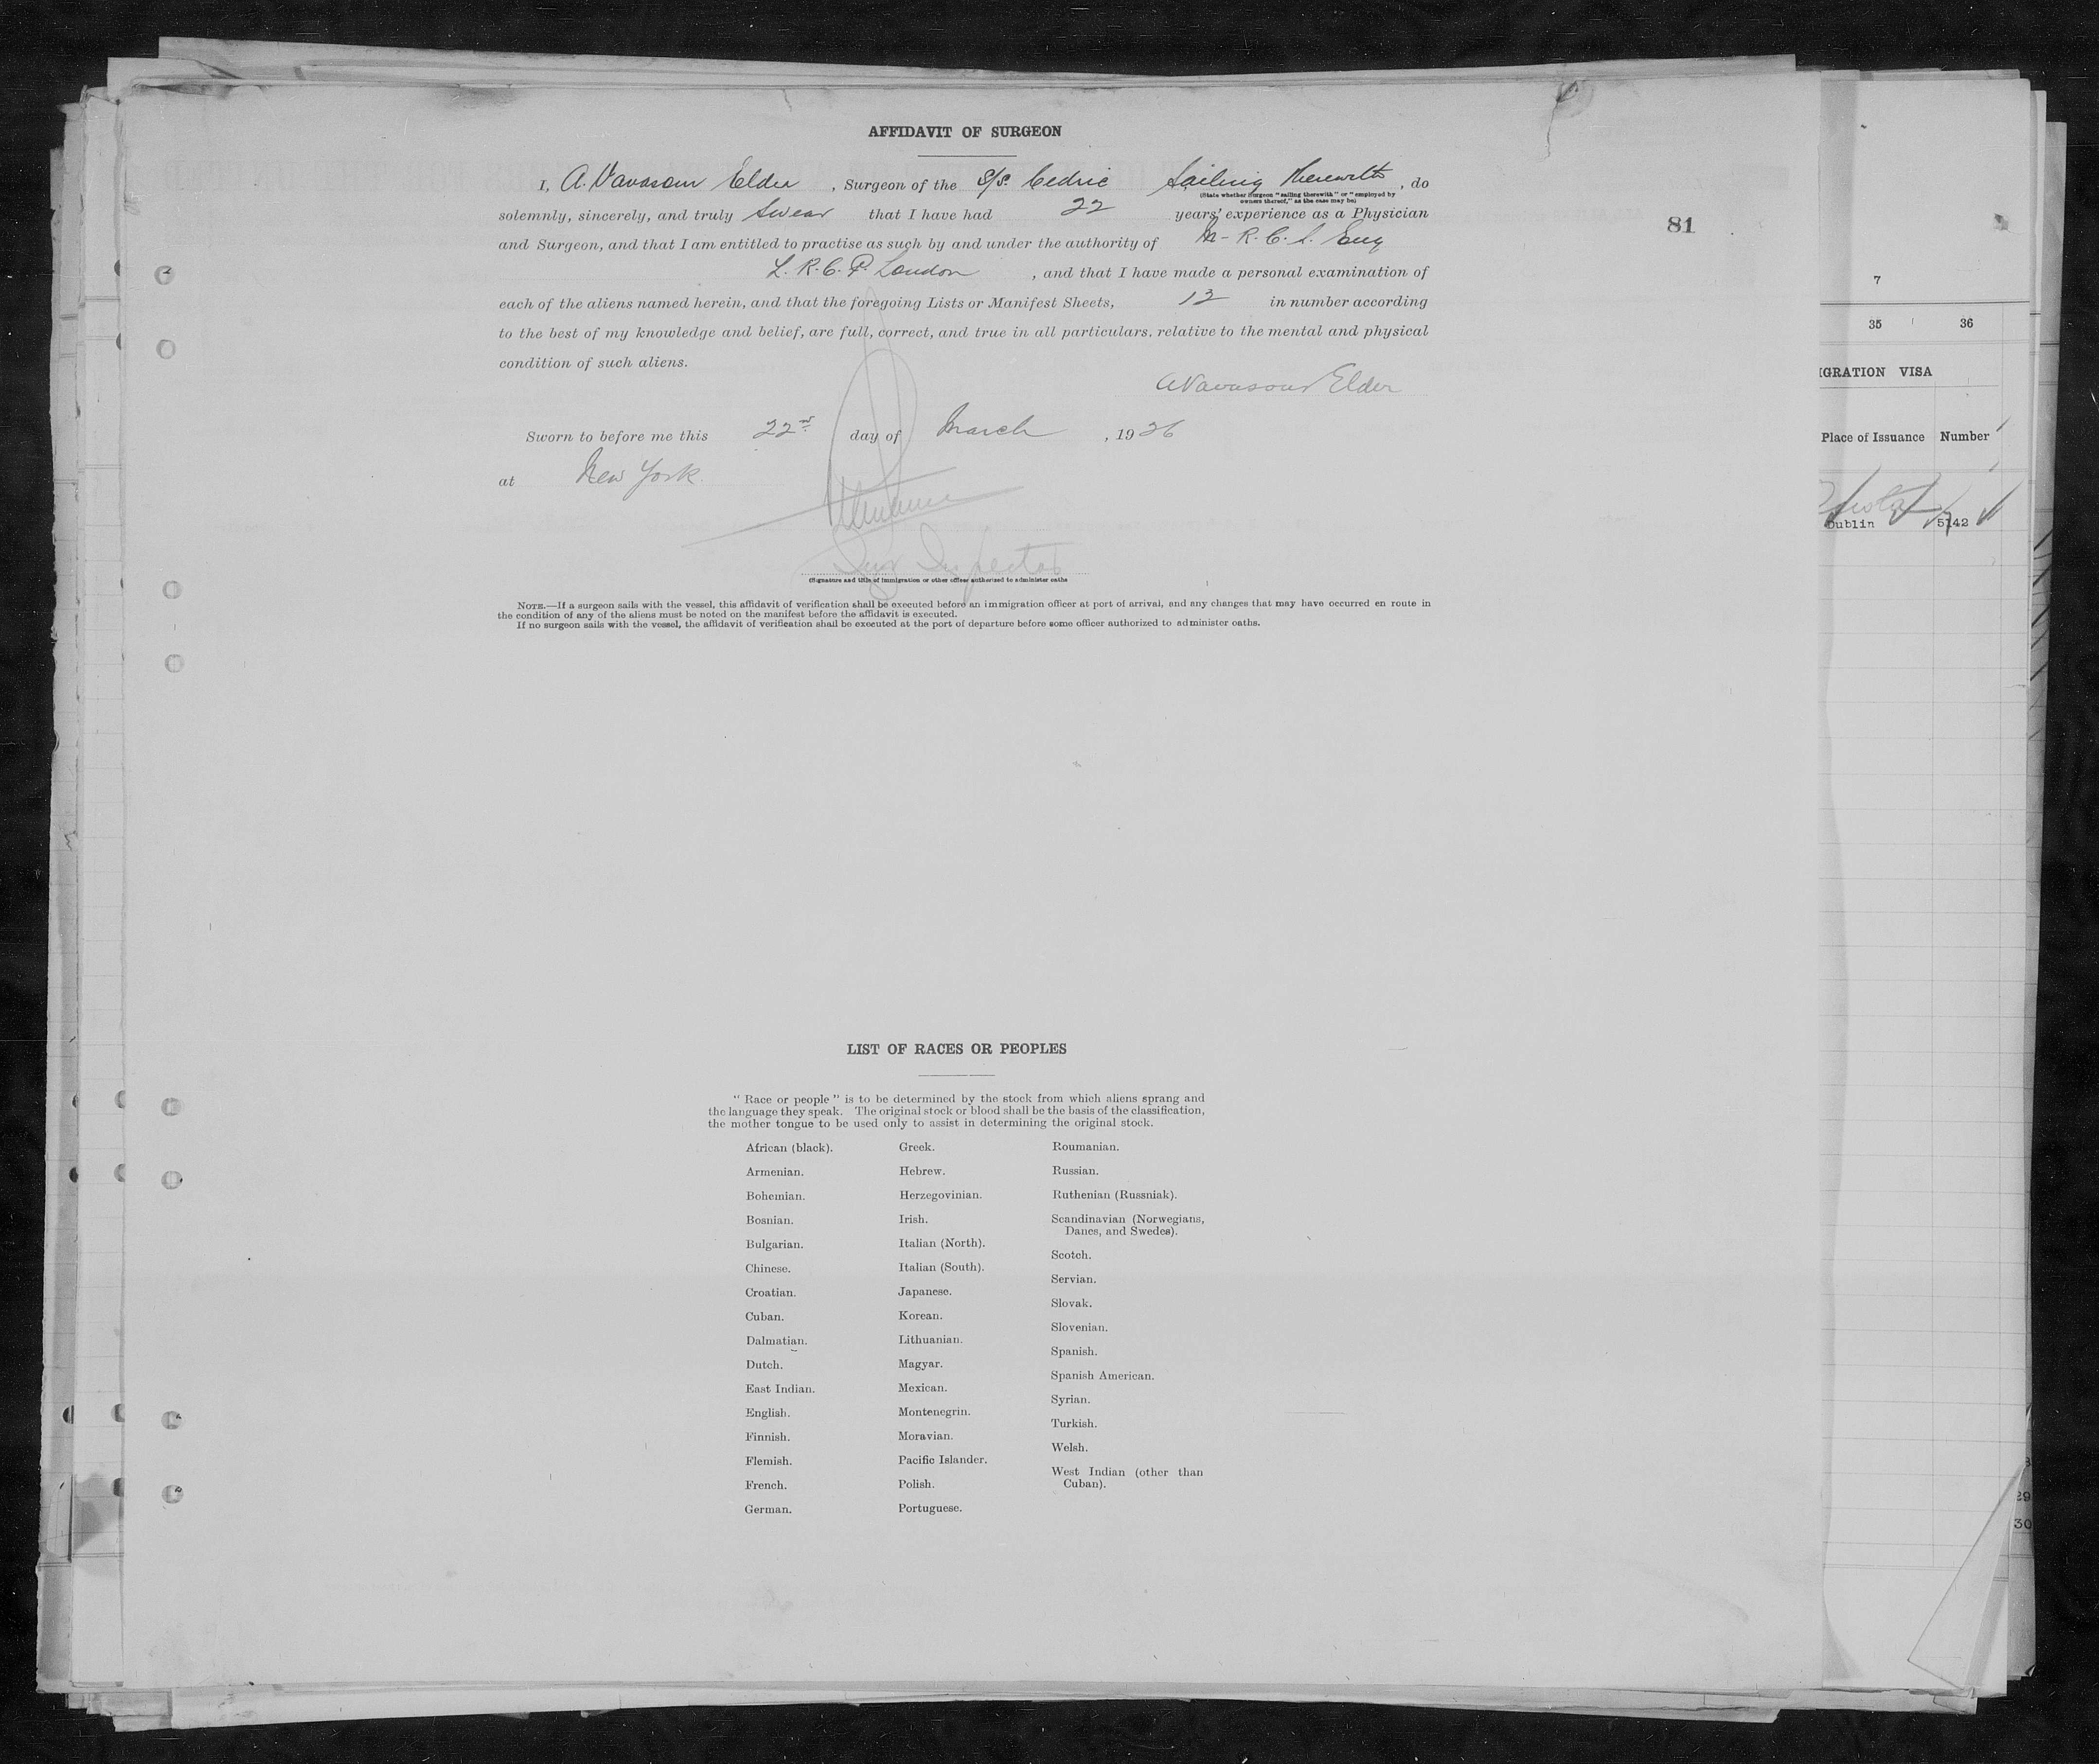 AFFIDAVIT OF SURGEON
I, A. Vavasour Elder, Surgeon of the S/S. Cedric Sailing therewith, do
(State whether Surgeon "sailing therewith" or "employed by
owners thereof," as the case may be)
solemnly, sincerely, and truly Swear that I have had 22 years' experience as a Physician
and Surgeon, and that I am entitled to practise as such by and under the authority of M-R.C.S. Eng
L.R.C.P. London, and that I have made a personal examination of
each of the aliens named herein, and that the foregoing Lists or Manifest Sheets, 13 in number according
to the best of my knowledge and belief, are full, correct, and true in all particulars, relative to the mental and physical
condition of such aliens.
A Vavasour Elder
Sworn to before me this 22nd day of March, 1926
at New York.
Inspector
(Signature and title of immigration or other officer authorized to administer oaths
NOTE.—If a surgeon sails with the vessel, this affidavit of verification shall be executed before an immigration officer at port of arrival, and any changes that may have occurred en route in
the condition of any of the aliens must be noted on the manifest before the affidavit is executed.
If no surgeon sails with the vessel, the affidavit of verification shall be executed at the port of departure before some officer authorized to administer oaths.
81
LIST OF RACES OR PEOPLES
"Race or people" is to be determined by the stock from which aliens sprang and
the language they speak. The original stock or blood shall be the basis of the classification,
the mother tongue to be used only to assist in determining the original stock.
African (black).
Armenian.
Bohemian.
Bosnian.
Bulgarian.
Chinese.
Croatian.
Cuban.
Dalmatian.
Dutch.
East Indian.
English.
Finnish.
Flemish.
French.
German.
Greek.
Hebrew.
Herzegovinian.
Irish.
Italian (North).
Italian (South).
Japanese.
Korean.
Lithuanian.
Magyar.
Mexican.
Montenegrin.
Moravian.
Pacific Islander.
Polish.
Portuguese.
Roumanian.
Russian.
Ruthenian (Russniak).
Scandinavian (Norwegians,
Danes, and Swedes).
Scotch.
Servian.
Slovak.
Slovenian.
Spanish.
Spanish American.
Syrian.
Turkish.
Welsh.
West Indian (other than
Cuban).
7
35 36
IGRATION VISA
Place of Issuance Number
Dublin 5142
29
30